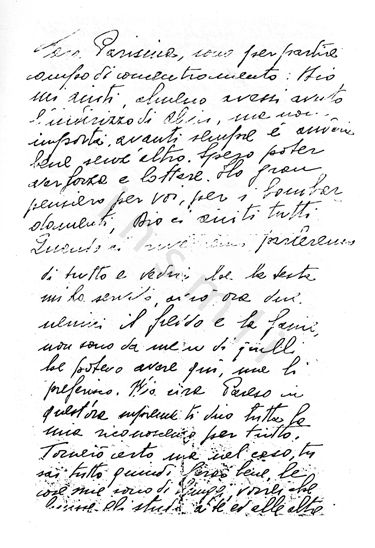 Cara Parisina, sono per partire
campo di concentramento: Dio
mi aiuti, almeno avessi avuto
l'indirizzo di ma non
importa, avanti sempre e andrà
bene senz'altro. Spero poter
aver forza e lottare. Ho gran
pensiero per voi, per i bombar
damenti, Dio ci aiuti tutti.
Quando ci parleremo
di tutto e vedrai che la testa
mi ha servito, ora due
nemici il freddo e la fame,
non sono da meno di quelli
che potevo avere qui, ma li
preferisco. Mia cara in
quest'ora ti dico tutta la
mia riconoscenza per tutto.
Tornerò certo ma nel caso, tu
sai tutto quindi farai bene, le
cose mie sono di vorrei che
a te ed alle altre